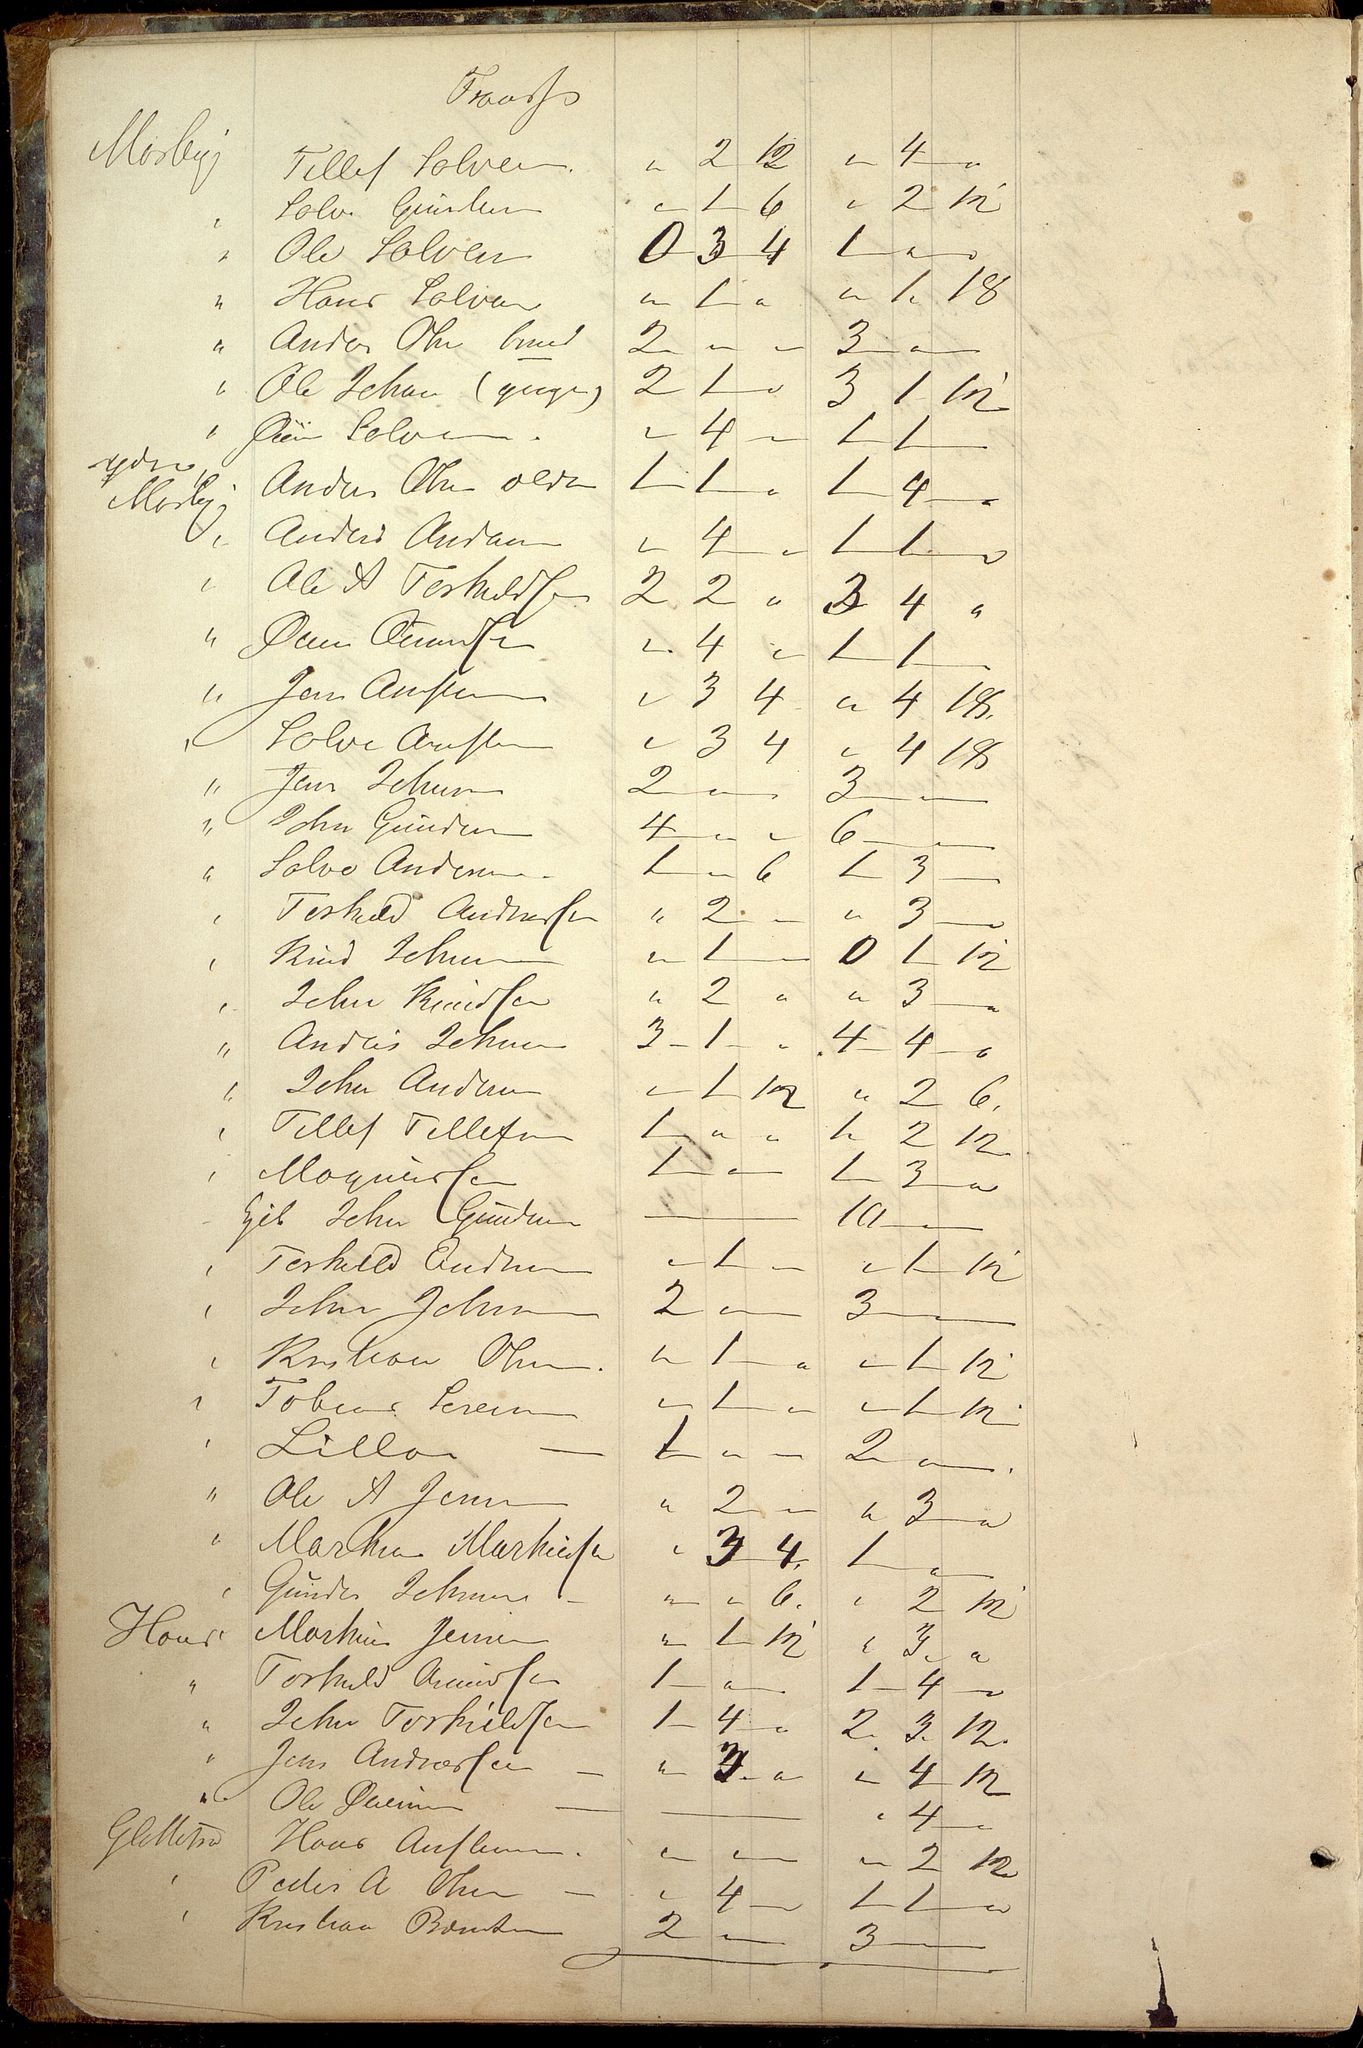 Transp
Mosbÿ Tellef Solvesen. " 2 12 " 4 "
" Solve Gunders " 1 6 " 2 12
" Ole Solvesen 0 3 4 1 " "
" Hans Solvesen " 1 " " 1 18
" Anders Olsen 2 " " 3 " —
" Ole Johan (ynger) 2 1 " 3 1 12
" Øien Solvesen. " 4 — 1 1 —
ydre
Mosbÿ Anders Olsen eldre 1 1 " 1 4 "
" Anders Andersen " 4 " 1 1 "
" Ole A Terkeldsen 2 2 " 3 4 "
" Øien " 4 " 1 1 —
" Jens " 3 4 " 4 18.
" Solve " 3 4 " 4 18
" Jens Johnsen 2 " — 3 " —
" John Gundersen 4 " " 6 — —
" Solve Andersen 1 " 6 1 3 —
" Terkeld Andersen " 2 — " 3 "
" Knud Johnsen " 1 — 0 1 12
" John Knudsen " 2 " " 3 "
" Anders Johnsen 3 1 " 4 4 "
" John Andersen " 1 12 " 2 6.
" Tellef Tellefsen 1 " " 1 2 12
" Magnussen 1 " — 1 3 "
Gjeb John Gundersen — 10 —
" Terkeld " 1 — " 1 12
" John Johnsen 2 " — 3 — —
" Kristian Olsen. " 1 " " 1 12
" Tobias Sørensen " 1 " " 1 12
" Lilla — 1 " — 2 " —.
" Ole A Jensen " 2 — " 3 "
" Markus Markussen " 3 4. 1 " —
" Gunder Johnsen — " " 6. " 2 12
Haus Markus Jensen " 1 12 " 3. "
" Torkeld 1 " — 1 4 "
" John Torkildsen 1 4 " 2. 3. 12.
" Jens Andersen — " 3. " " 4 12
" Ole Øiensen — — " 4 "
Glettetra Hans. " " — " 2 12
" Peder A Olsen — " 4 — 1 1 "
" Kristian Berntsen 2 " — 3 " —